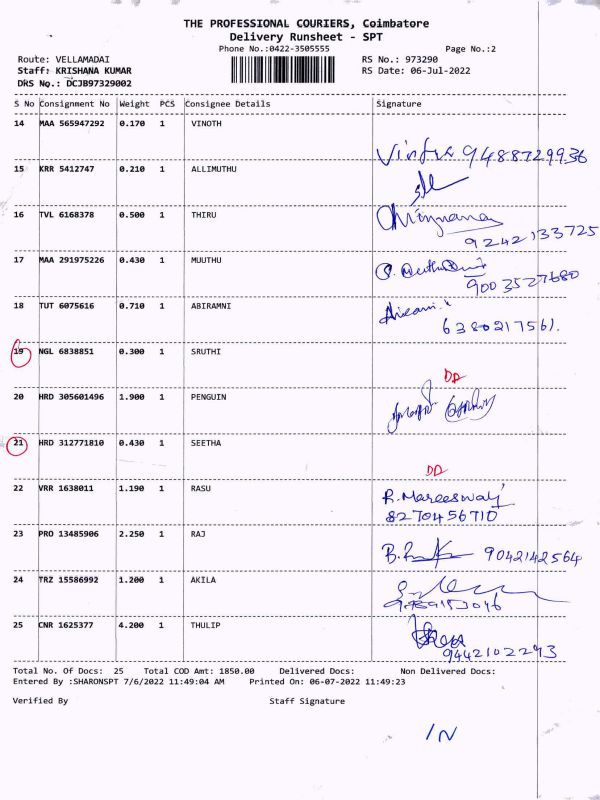 THE PROFESSIONAL COURIERS, Coimbatore
Delivery Runsheet - SPT
Phone No.:0422-3505555
Page No.:2
Route: VELLAMADAI
RS No.: 973290
Staff: KRISHANA KUMAR
RS Date: 06-Jul-2022
DRS No.: DCJB97329002
S No Consignment No Weight PCS Consignee Details Signature
14 MAA 565947292 0.170 1 VINOTH
9488729936
15 KRR 5412747 0.210 1 ALLIMUTHU
16 TVL 6168378 0.500 1 THIRU
9242133725
17 MAA 291975226 0.430 1 MUUTHU
9003527680
18 TUT 6075616 0.710 1 ABIRAMNI
6380217561.
19 NGL 6838851 0.300 1 SRUTHI
DD
20 HRD 305601496 1.900 1 PENGUIN
21 HRD 312771810 0.430 1 SEETHA
DD
22 VRR 1638011 1.190 1 RASU
R. Mareeswaly
8270456710
23 PRO 13485906 2.250 1 RAJ
9042142564
24 TRZ 15586992 1.200 1 AKILA
25 CNR 1625377 4.200 1 THULIP
9442102293
Total No. Of Docs: 25 Total COD Amt: 1850.00 Delivered Docs: Non Delivered Docs:
Entered By :SHARONSPT 7/6/2022 11:49:04 AM Printed On: 06-07-2022 11:49:23
Verified By Staff Signature
IN